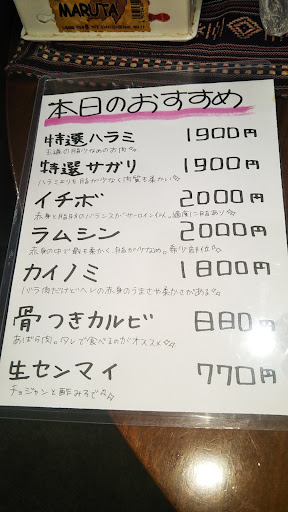 MARUTA
本日のおすすめ
特選ハラミ 1900円
王道の脂少なめのお肉
特選サガリ 1900円
ハラミよりも脂が少なく肉質も柔かい
イチボ 2000円
赤身と脂肪のバランスがサーロインくん。適度に脂あり
ラムシン 2000円
赤身の中で最も柔かく、脂が少なめ。希少部位
カイノミ 1800円
バラ肉だけどヘレの赤身のうまさや柔かさがある
骨つきカルビ 880円
あばら肉。タレで食べるのがオススメ
生センマイ 770円
チョジャンと酢みそで